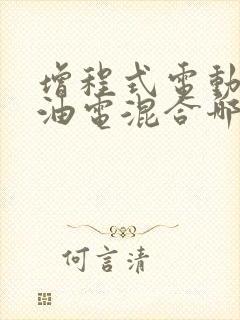 增程式電動
油電混合哪
何言清